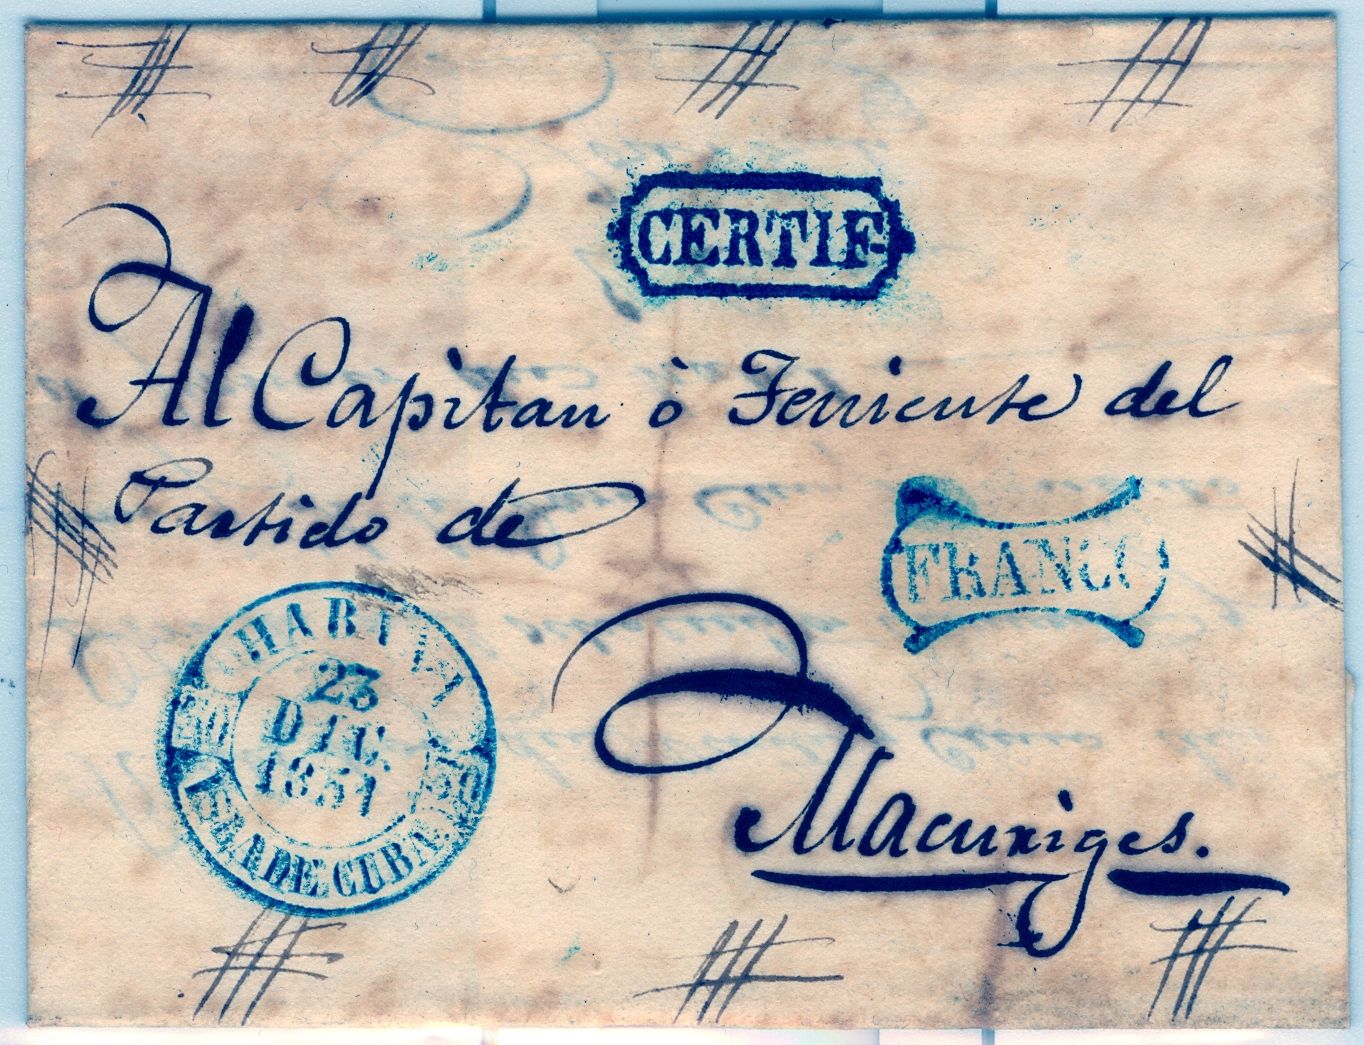 CERTIF
Al Capitan ò Teniente del
Partido de
FRANCO
HABANA
23
DIC.
1851
ISLA DE CUBA
Macuriges.